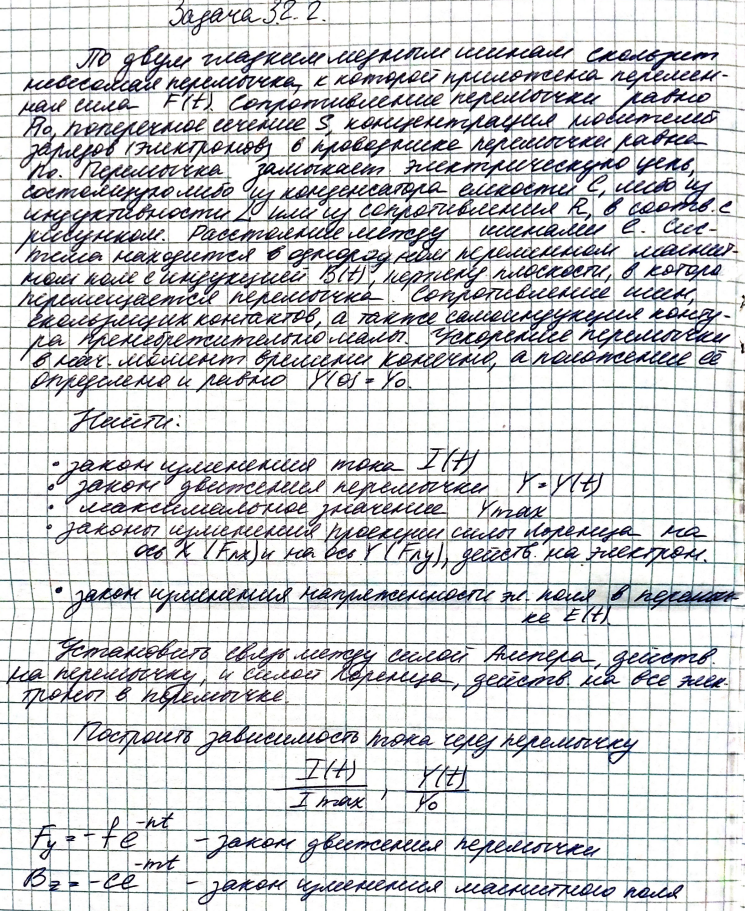 Задача 3.2.2.
По двум гладким медным шинам скользит
невесомая перемычка, к которой приложена перемен-
ная сила F(t). Сопротивление перемычки равно
R₀, поперечное сечение S, концентрация носителей
зарядов (электронов) в проводнике перемычки равна
n₀. Перемычка замыкает электрическую цепь,
состоящую либо из конденсатора емкости C, либо из
индуктивности L или из сопротивления R, в соотв. с
рисунком. Расстояние между шинами l. Сис-
тема находится в однородном переменном магнит-
ном поле с индукцией B(t), перпенд. плоскости, в которо
перемещается перемычка. Сопротивление шин,
скользящих контактов, а также самоиндукция конту-
ра пренебрежительно малы. Ускорение перемычки
в нач. момент времени конечно, а положение её
определено и равно Y(0) = Y₀.
Найти:
• закон изменения тока I(t)
• закон движения перемычки Y = Y(t)
• максимальное значение Ymax
• законы изменения проекции силы Лоренца на
ось X (Fлх) и на ось Y (Fлy), действ. на электрон.
• закон изменения напряженности эл. поля в перемыч-
ке E(t).
Установить связь между силой Ампера, действ.
на перемычку, и силой Лоренца, действ. на все элек-
троны в перемычке.
Построить зависимость тока через перемычку
I(t)/Imax, Y(t)/Y₀
Fy = -fe^-nt - закон движения перемычки
Bz = -ce^-mt - закон изменения магнитного поля